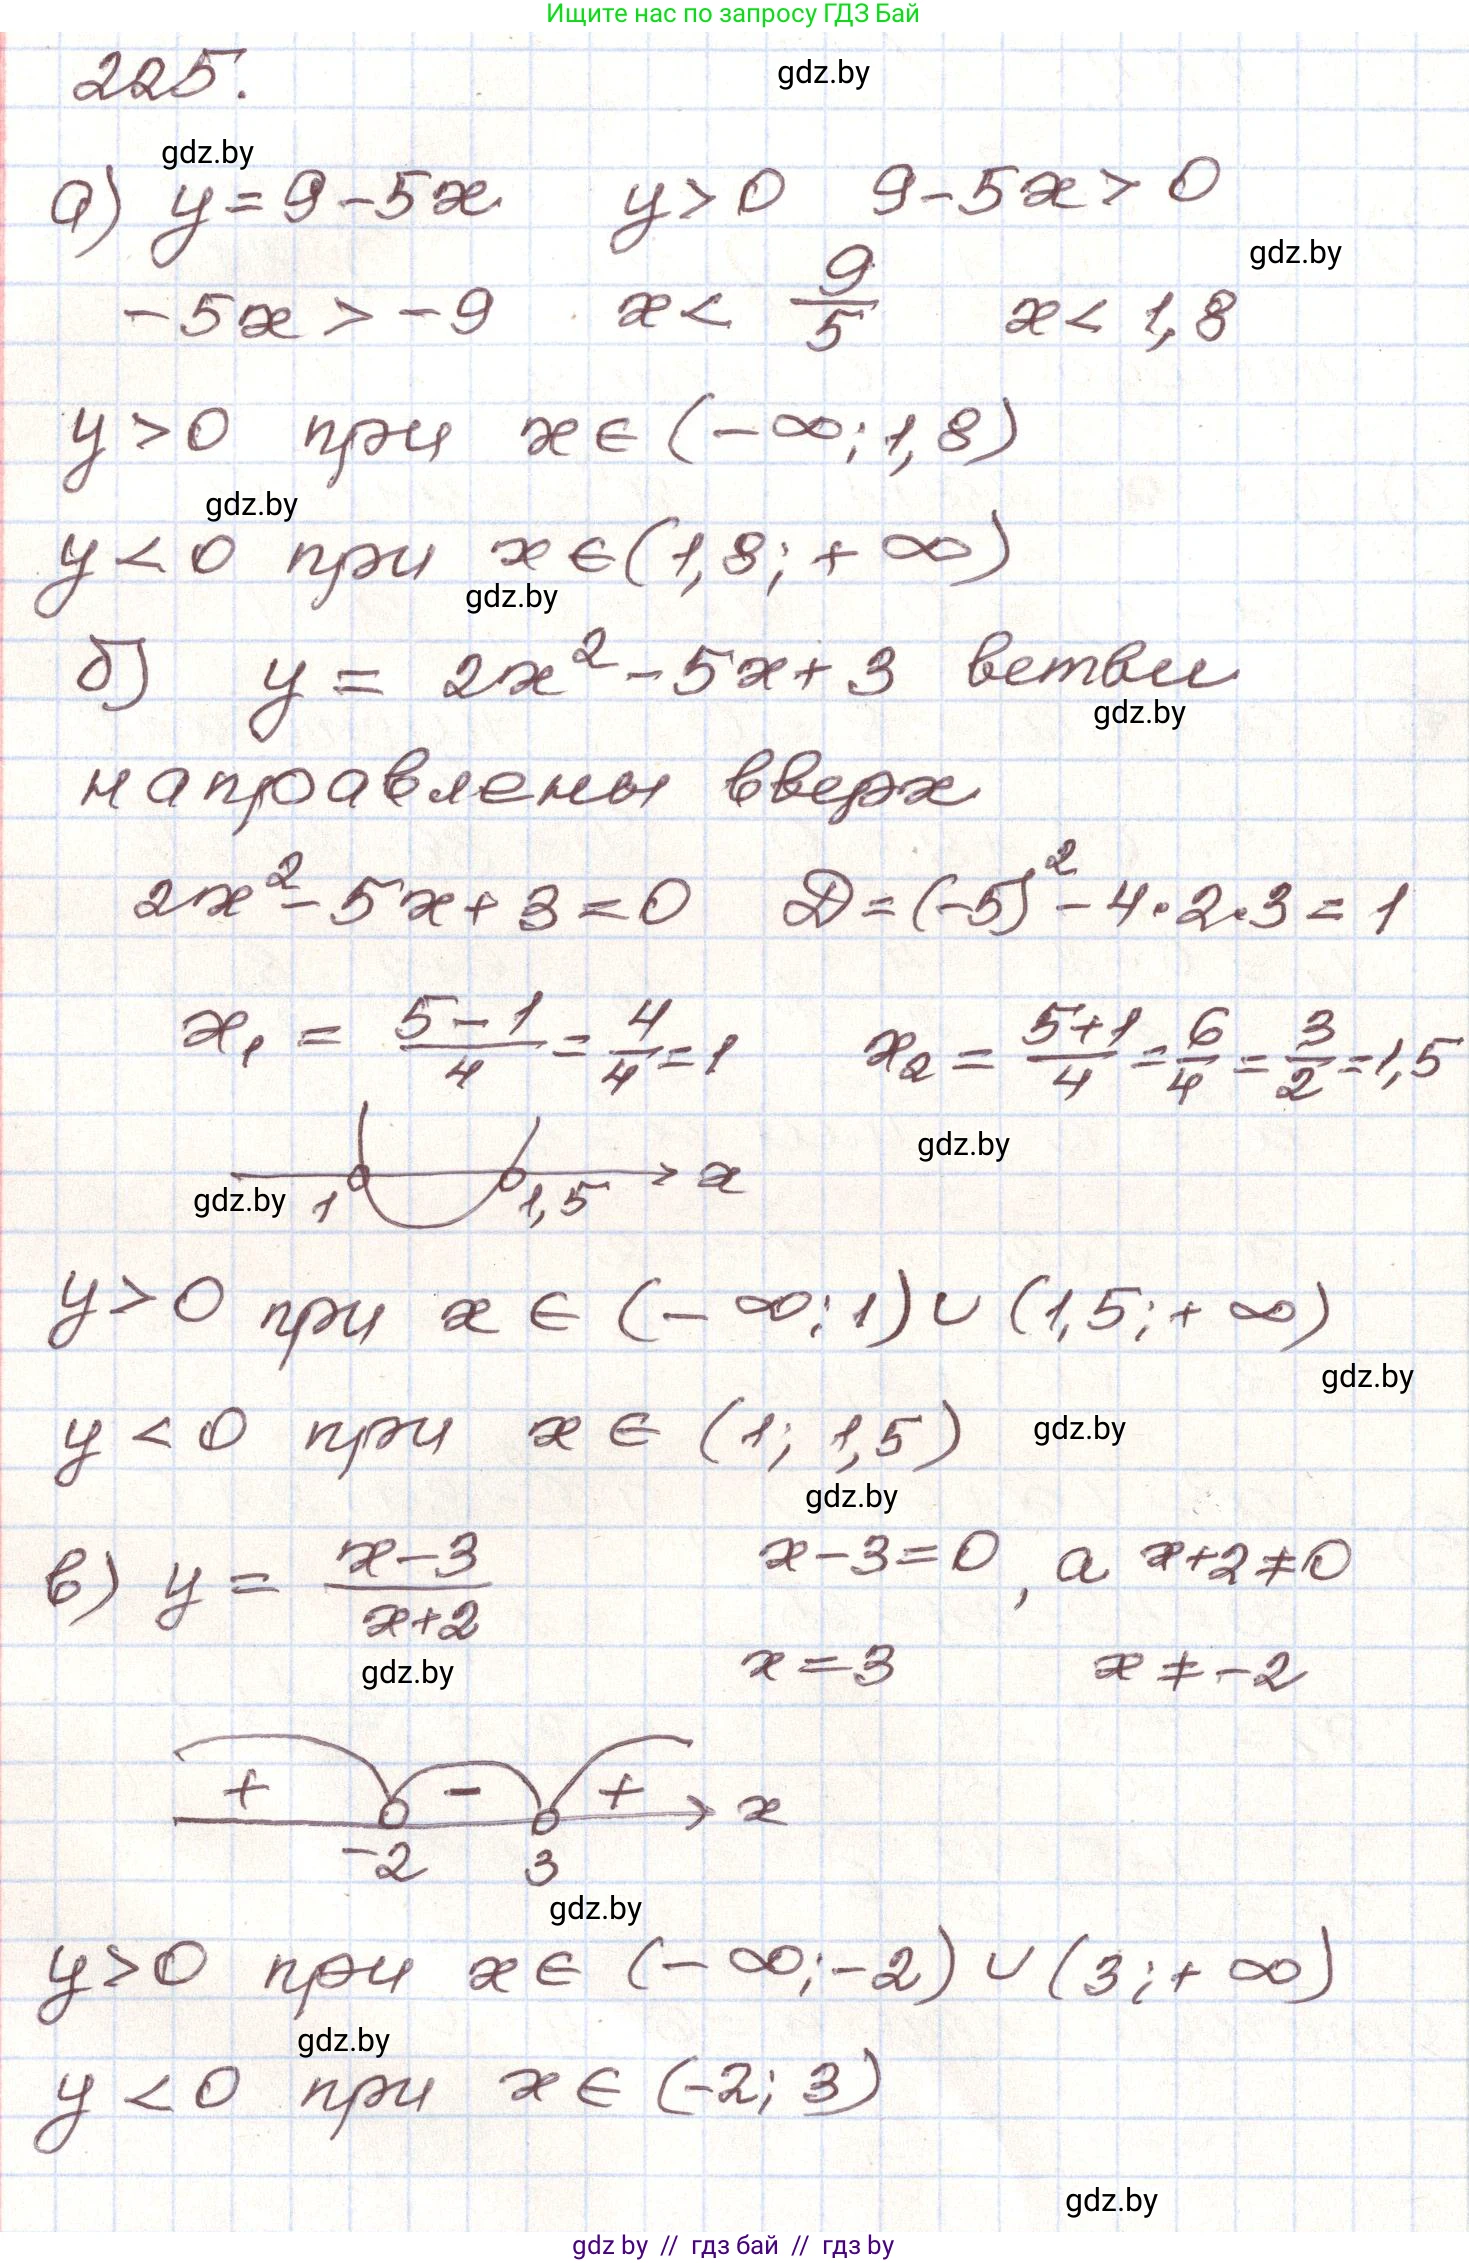 Ищите нас по запросу ГДЗ Бай
225.
gdz.by
gdz.by
а) y = 9 - 5x   y > 0   9 - 5x > 0
gdz.by
-5x > -9   x < 9/5   x < 1,8
y > 0 при x ∈ (-∞; 1,8)
gdz.by
y < 0 при x ∈ (1,8; +∞)
gdz.by
б) y = 2x² - 5x + 3 ветви
gdz.by
направлены вверх
2x² - 5x + 3 = 0   D = (-5)² - 4·2·3 = 1
x₁ = (5-1)/4 = 4/4 = 1   x₂ = (5+1)/4 = 6/4 = 3/2 = 1,5
gdz.by
gdz.by 1 1,5 x
y > 0 при x ∈ (-∞; 1) ∪ (1,5; +∞)
gdz.by
y < 0 при x ∈ (1; 1,5) gdz.by
gdz.by
в) y = (x-3)/(x+2)   x - 3 = 0, а x + 2 ≠ 0
gdz.by x = 3   x ≠ -2
+ - + x
-2 3
gdz.by
y > 0 при x ∈ (-∞; -2) ∪ (3; +∞)
gdz.by
y < 0 при x ∈ (-2; 3)
gdz.by
gdz by // гдз бай // гдз by